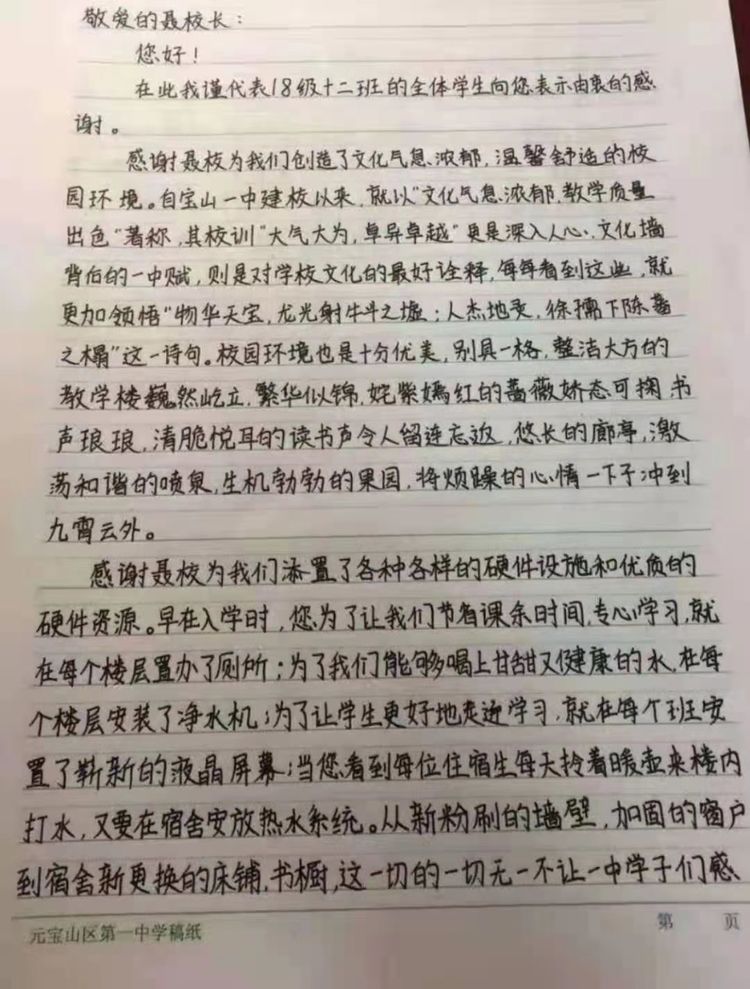 敬爱的聂校长：
您好！
在此我谨代表18级十二班的全体学生向您表示由衷的感
谢。
感谢聂校为我们创造了文化气息浓郁，温馨舒适的校
园环境。自宝山一中建校以来，就以“文化气息浓郁，教学质量
出色”著称，其校训“大气大为，卓异卓越”更是深入人心，文化墙
背后的一中赋，则是对学校文化的最好诠释，每每看到这些，就
更加领悟“物华天宝，龙光射牛斗之墟；人杰地灵，徐孺下陈蕃
之榻”这一诗句。校园环境也是十分优美，别具一格，整洁大方的
教学楼巍然屹立，繁华似锦，姹紫嫣红的蔷薇娇态可掬，书
声琅琅，清脆悦耳的读书声令人留连忘返，悠长的廊亭，激
荡和谐的喷泉，生机勃勃的果园，将烦躁的心情一下子冲到
九霄云外。
感谢聂校为我们添置了各种各样的硬件设施和优质的
硬件资源。早在入学时，您为了让我们节省课余时间，专心学习，就
在每个楼层置办了厕所；为了我们能够多喝上甘甜又健康的水，在每
个楼层安装了净水机；为了让学生更好地走进学习，就在每个班安
置了崭新的液晶屏幕；当您看到每位住宿生每天拎着暖壶来楼内
打水，又要在宿舍安放热水系统。从新粉刷的墙壁，加固的窗户
到宿舍新更换的床铺，书橱，这一切的一切无一不让一中学子们感
元宝山区第一中学稿纸
第 页